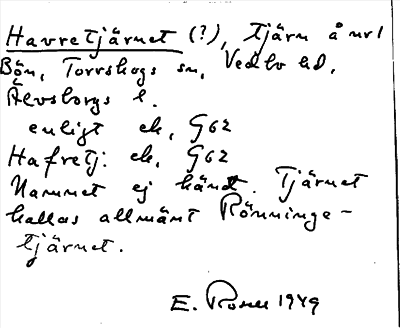 Havretjärnet (?), tjärn å nr 1
Bön, Torrskogs sn, Vedbo hd,
Älvsborgs l.
enligt ek, G62
Hafretj. ek, G62
Namnet ej känt. Tjärnet
kallas allmänt Rönninge-
tjärnet.
E. Rosell 1949